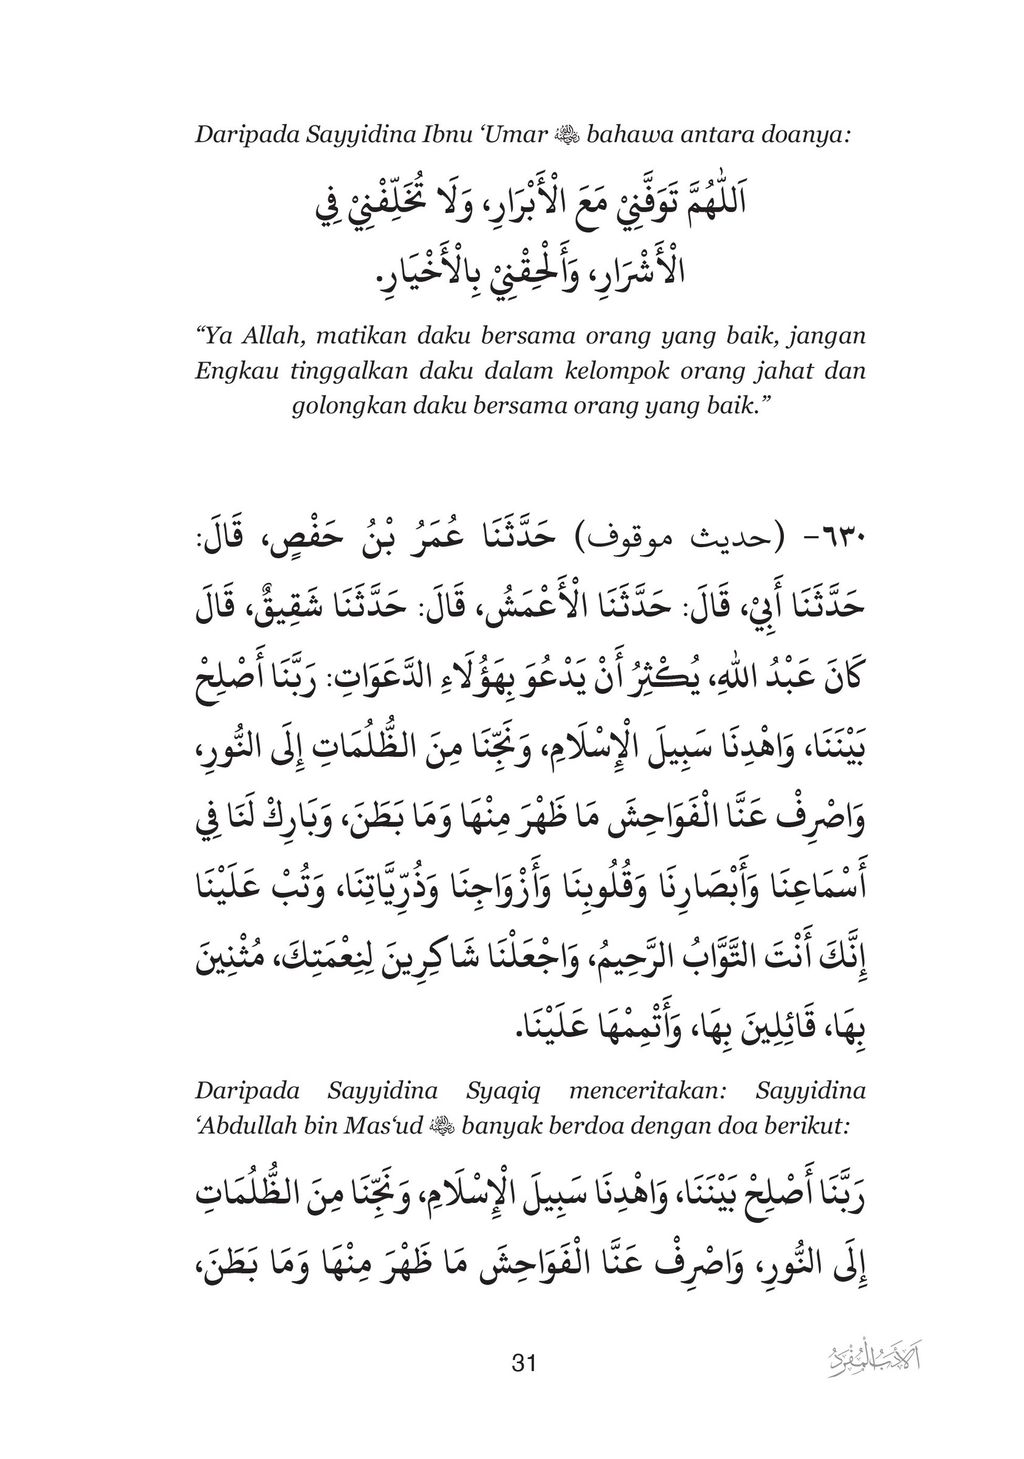 Daripada Sayyidina Ibnu ‘Umar رضي الله عنه bahawa antara doanya:
اَللّٰهُمَّ تَوَفَّنِيْ مَعَ الْأَبْرَارِ، وَلَا تُخَلِّفْنِيْ فِي
الْأَشْرَارِ، وَأَلْحِقْنِيْ بِالْأَخْيَارِ.
“Ya Allah, matikan daku bersama orang yang baik, jangan
Engkau tinggalkan daku dalam kelompok orang jahat dan
golongkan daku bersama orang yang baik.”
٦٣٠- (حديث موقوف) حَدَّثَنَا عُمَرُ بْنُ حَفْصٍ، قَالَ:
حَدَّثَنَا أَبِيْ، قَالَ: حَدَّثَنَا الْأَعْمَشُ، قَالَ: حَدَّثَنَا شَقِيقٌ، قَالَ
كَانَ عَبْدُ اللهِ، يُكْثِرُ أَنْ يَدْعُوَ بِهَؤُلَاءِ الدَّعَوَاتِ: رَبَّنَا أَصْلِحْ
بَيْنَنَا، وَاهْدِنَا سَبِيلَ الْإِسْلَامِ، وَنَجِّنَا مِنَ الظُّلُمَاتِ إِلَى النُّورِ،
وَاصْرِفْ عَنَّا الْفَوَاحِشَ مَا ظَهْرَ مِنْهَا وَمَا بَطَنَ، وَبَارِكْ لَنَا فِي
أَسْمَاعِنَا وَأَبْصَارِنَا وَقُلُوبِنَا وَأَزْوَاجِنَا وَذُرِّيَّاتِنَا، وَتُبْ عَلَيْنَا
إِنَّكَ أَنْتَ التَّوَّابُ الرَّحِيمُ، وَاجْعَلْنَا شَاكِرِينَ لِنِعْمَتِكَ، مُثْنِينَ
بِهَا، قَائِلِينَ بِهَا، وَأَتْمِمْهَا عَلَيْنَا.
Daripada Sayyidina Syaqiq menceritakan: Sayyidina
‘Abdullah bin Mas‘ud رضي الله عنه banyak berdoa dengan doa berikut:
رَبَّنَا أَصْلِحْ بَيْنَنَا، وَاهْدِنَا سَبِيلَ الْإِسْلَامِ، وَنَجِّنَا مِنَ الظُّلُمَاتِ
إِلَى النُّورِ، وَاصْرِفْ عَنَّا الْفَوَاحِشَ مَا ظَهْرَ مِنْهَا وَمَا بَطَنَ،
31
اَلْأَدَبُ الْمُفْرَدُ